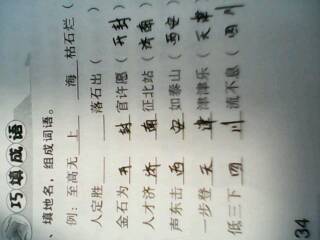 巧填成语
、填地名，组成词语。
例：至高无 上 海 枯石烂（
人定胜 落石出（
金石为 开 封 官许愿（ 开封
人才济 济 南 征北站（ 济南
声东击 西 安 如泰山（ 西安
一步登 天 津 津津乐（ 天津
低三下 四 川 流不息（ 四川
34